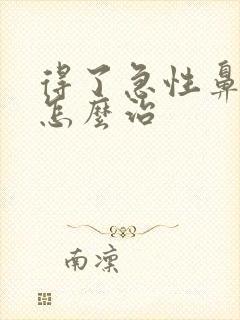 得了急性鼻
怎麼治
南凜